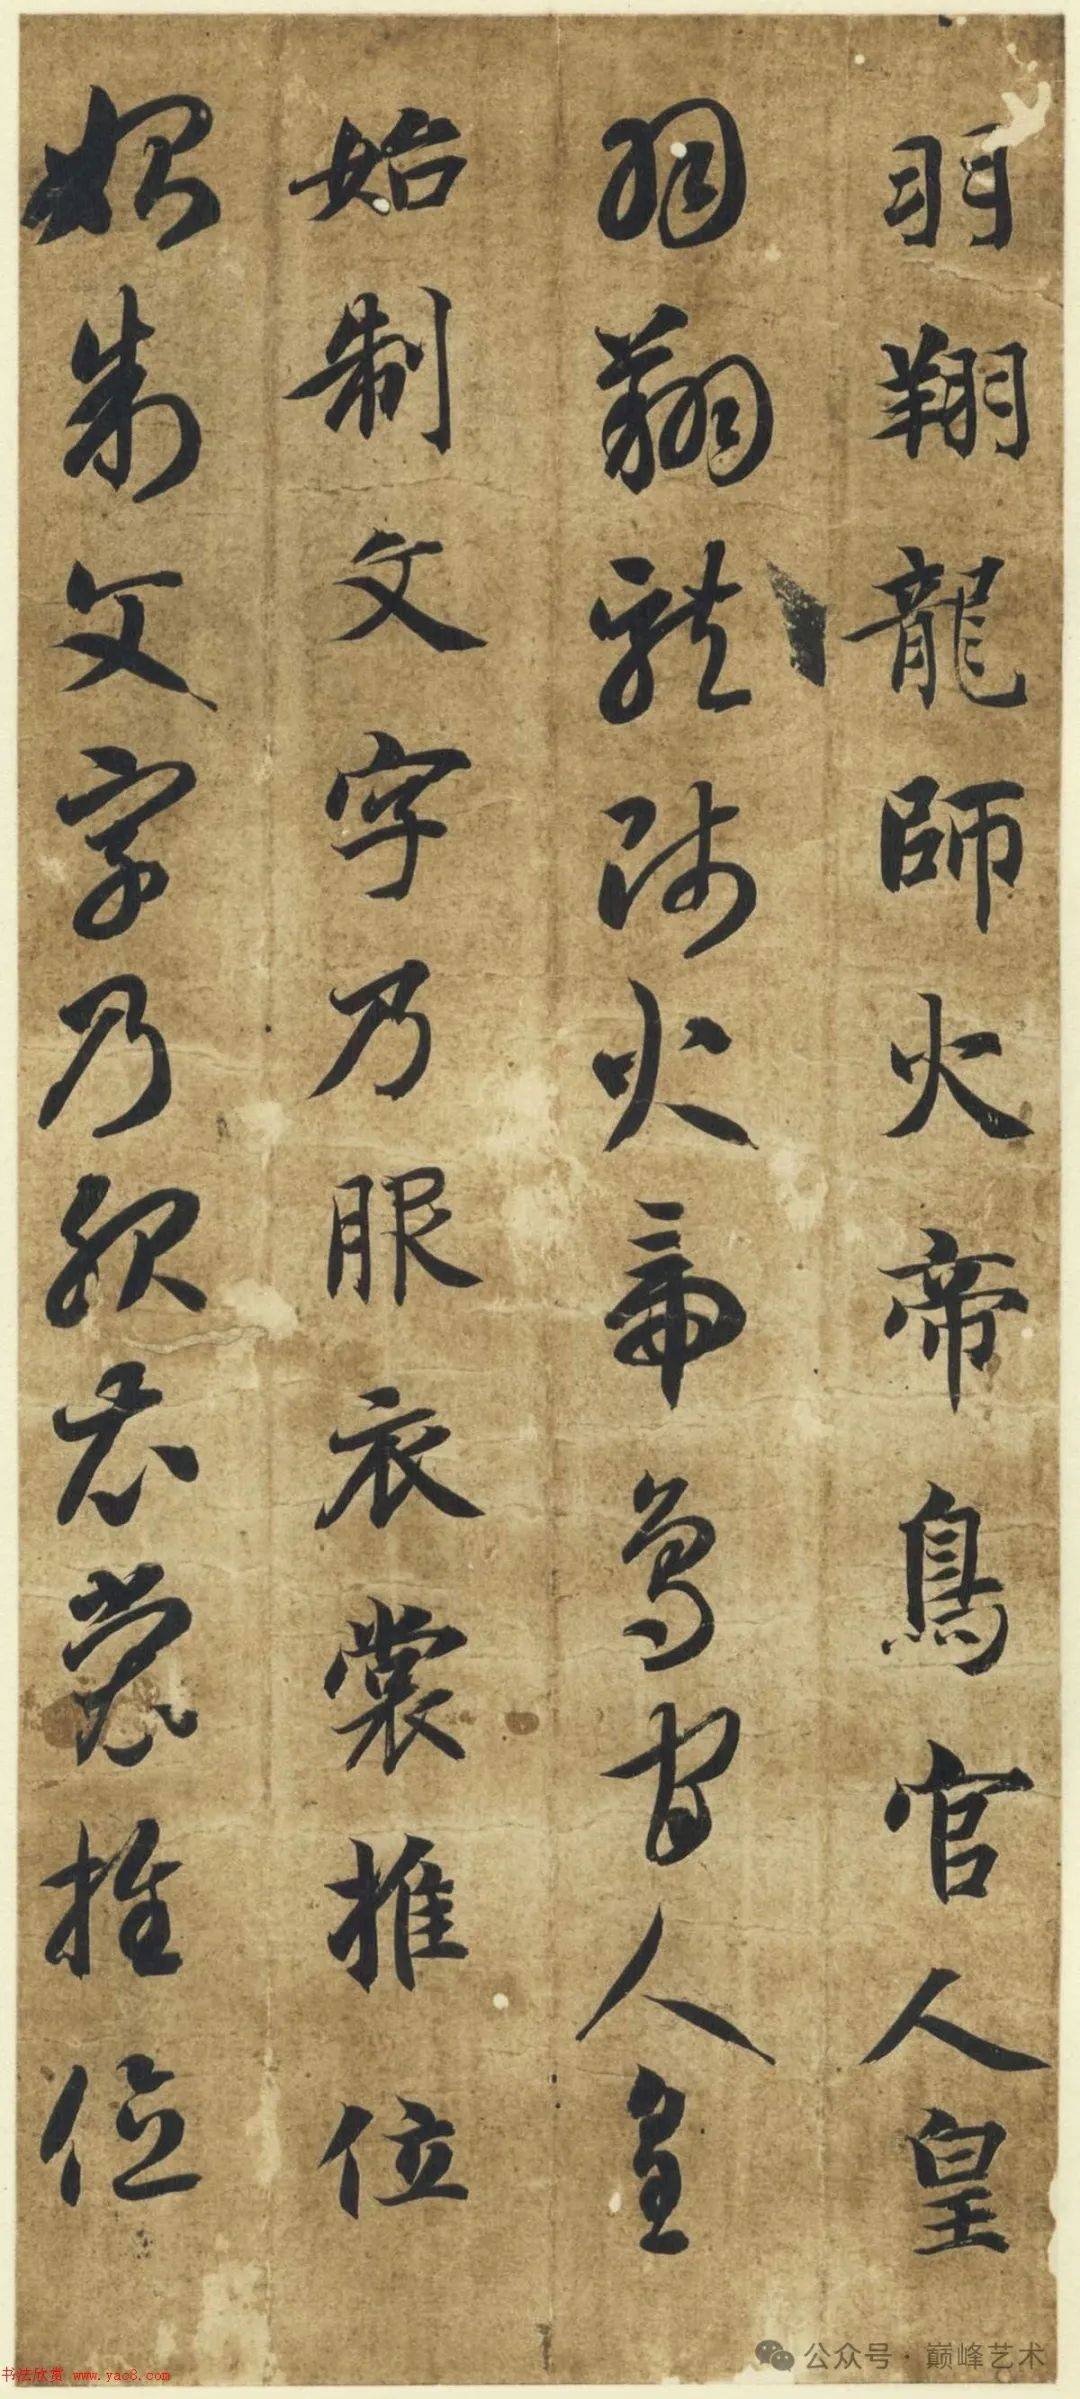 羽翔龍師火帝鳥官人皇
羽翔龍師火帝鳥官人皇
始制文字乃服衣裳推位
始制文字乃服衣裳推位
公众号·巅峰艺术
书法欣赏 www.yac8.com